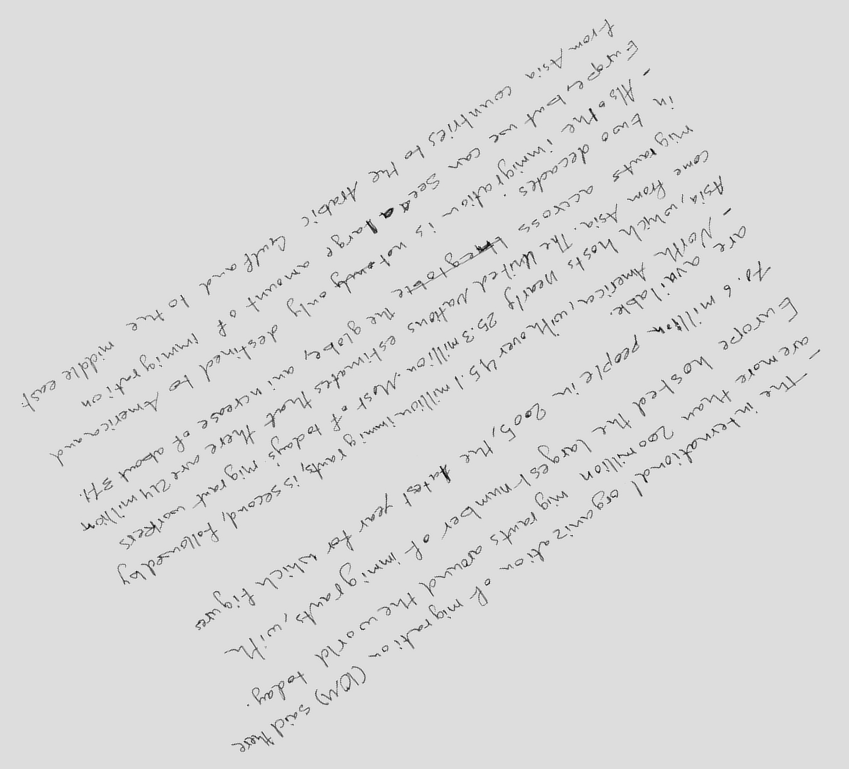 - The international organization of migration (IOM) said there
are more than 200 million migrants around the world today.
Europe hosted the largest number of immigrants, with
70.6 million people in 2005, the latest year for which figures
are available.
- North America, with over 45.1 million immigrants, is second, followed by
Asia, which hosts nearly 25.3 million. Most of today's migrant workers
come from Asia. The United Nations estimates that there are 214 million
migrants across the globe, an increase of about 37%
in two decades.
- Also the immigration is not only destined to America and
Europe, but we can see a large amount of immigration
from Asia countries to the Arabic Gulf and to the middle east